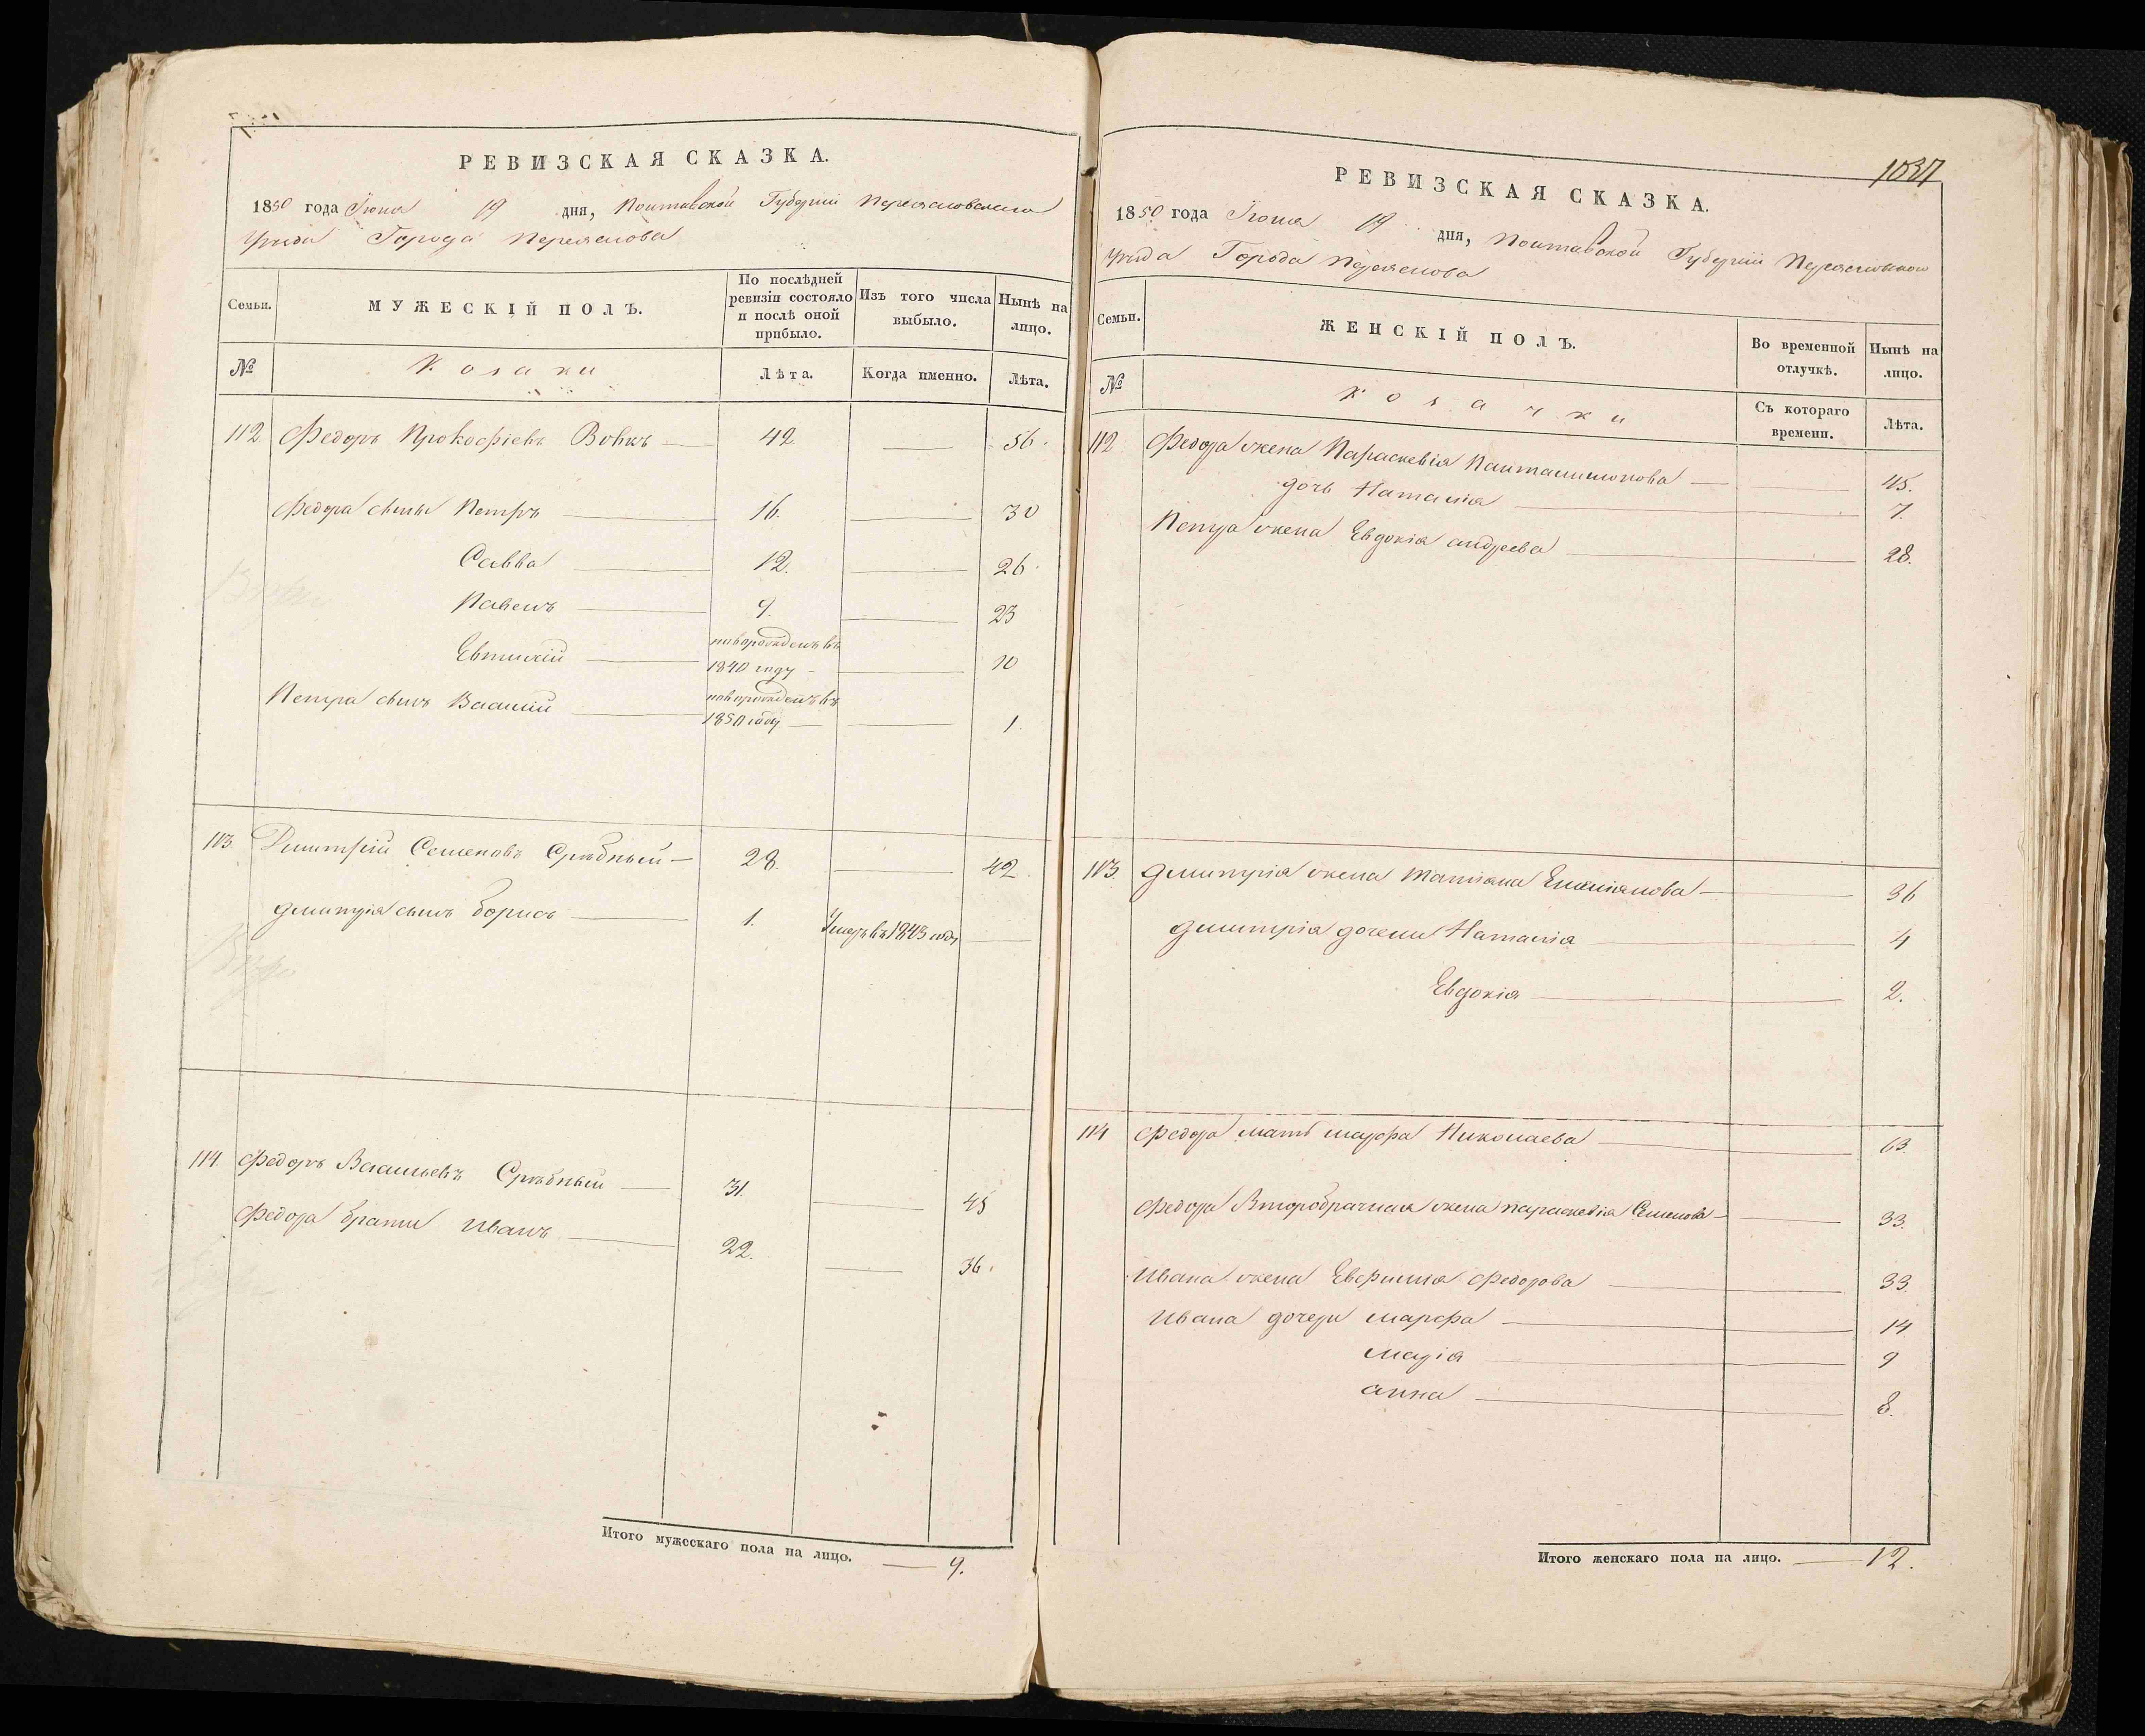 РЕВИЗСКАЯ СКАЗКА.
1850 года Іюня 19 дня, Полтавской Губерніи Переясловскаго
уѣзда Города Переяслова
Семьи.
МУЖЕСКІЙ ПОЛЪ.
По послѣдней ревизіи состояло и послѣ оной прибыло.
Изъ того числа выбыло.
Нынѣ на лицо.
№
Козаки
Лѣта.
Когда именно.
Лѣта.
112 Федоръ Прокофіевъ Вовкъ 42 56.
Федора сыны Петръ 16. 30
Савва 12. 26.
Павелъ 9. 23
Евтихій новорожденъ въ 1840 году 10
Петра сынъ Василій новорожденъ въ 1850 году 1.
113. Дмитрій Семеновъ Срѣбный 28. 42.
Дмитрія сынъ Борисъ 1. Умеръ въ 1843 году
114. Федоръ Васильевъ Срѣбный 31. 45
Федора братъ Иванъ 22. 36.
Итого мужескаго пола на лицо. 9.
1037
РЕВИЗСКАЯ СКАЗКА.
1850 года Іюня 19 дня, Полтавской Губерніи Переясловскаго
уѣзда Города Переяслова
Семьи.
ЖЕНСКІЙ ПОЛЪ.
Во временной отлучкѣ.
Нынѣ на лицо.
№
Козачки
Съ котораго времени.
Лѣта.
112 Федора жена Параскевія Панталимонова 45.
дочь Наталія 7.
Петра жена Евдокія андреева 28.
113. Дмитрія жена Татіана Емиліанова 36
Дмитрія дочери Наталія 4
Евдокія 2.
114 Федора мать марфа Николаева 63.
Федора Второбрачная жена параскевія Семенова 33.
Ивана жена Евфимия Федорова 33.
Ивана дочери марфа 14
марія 9
анна 8.
Итого женскаго пола на лицо. 12.